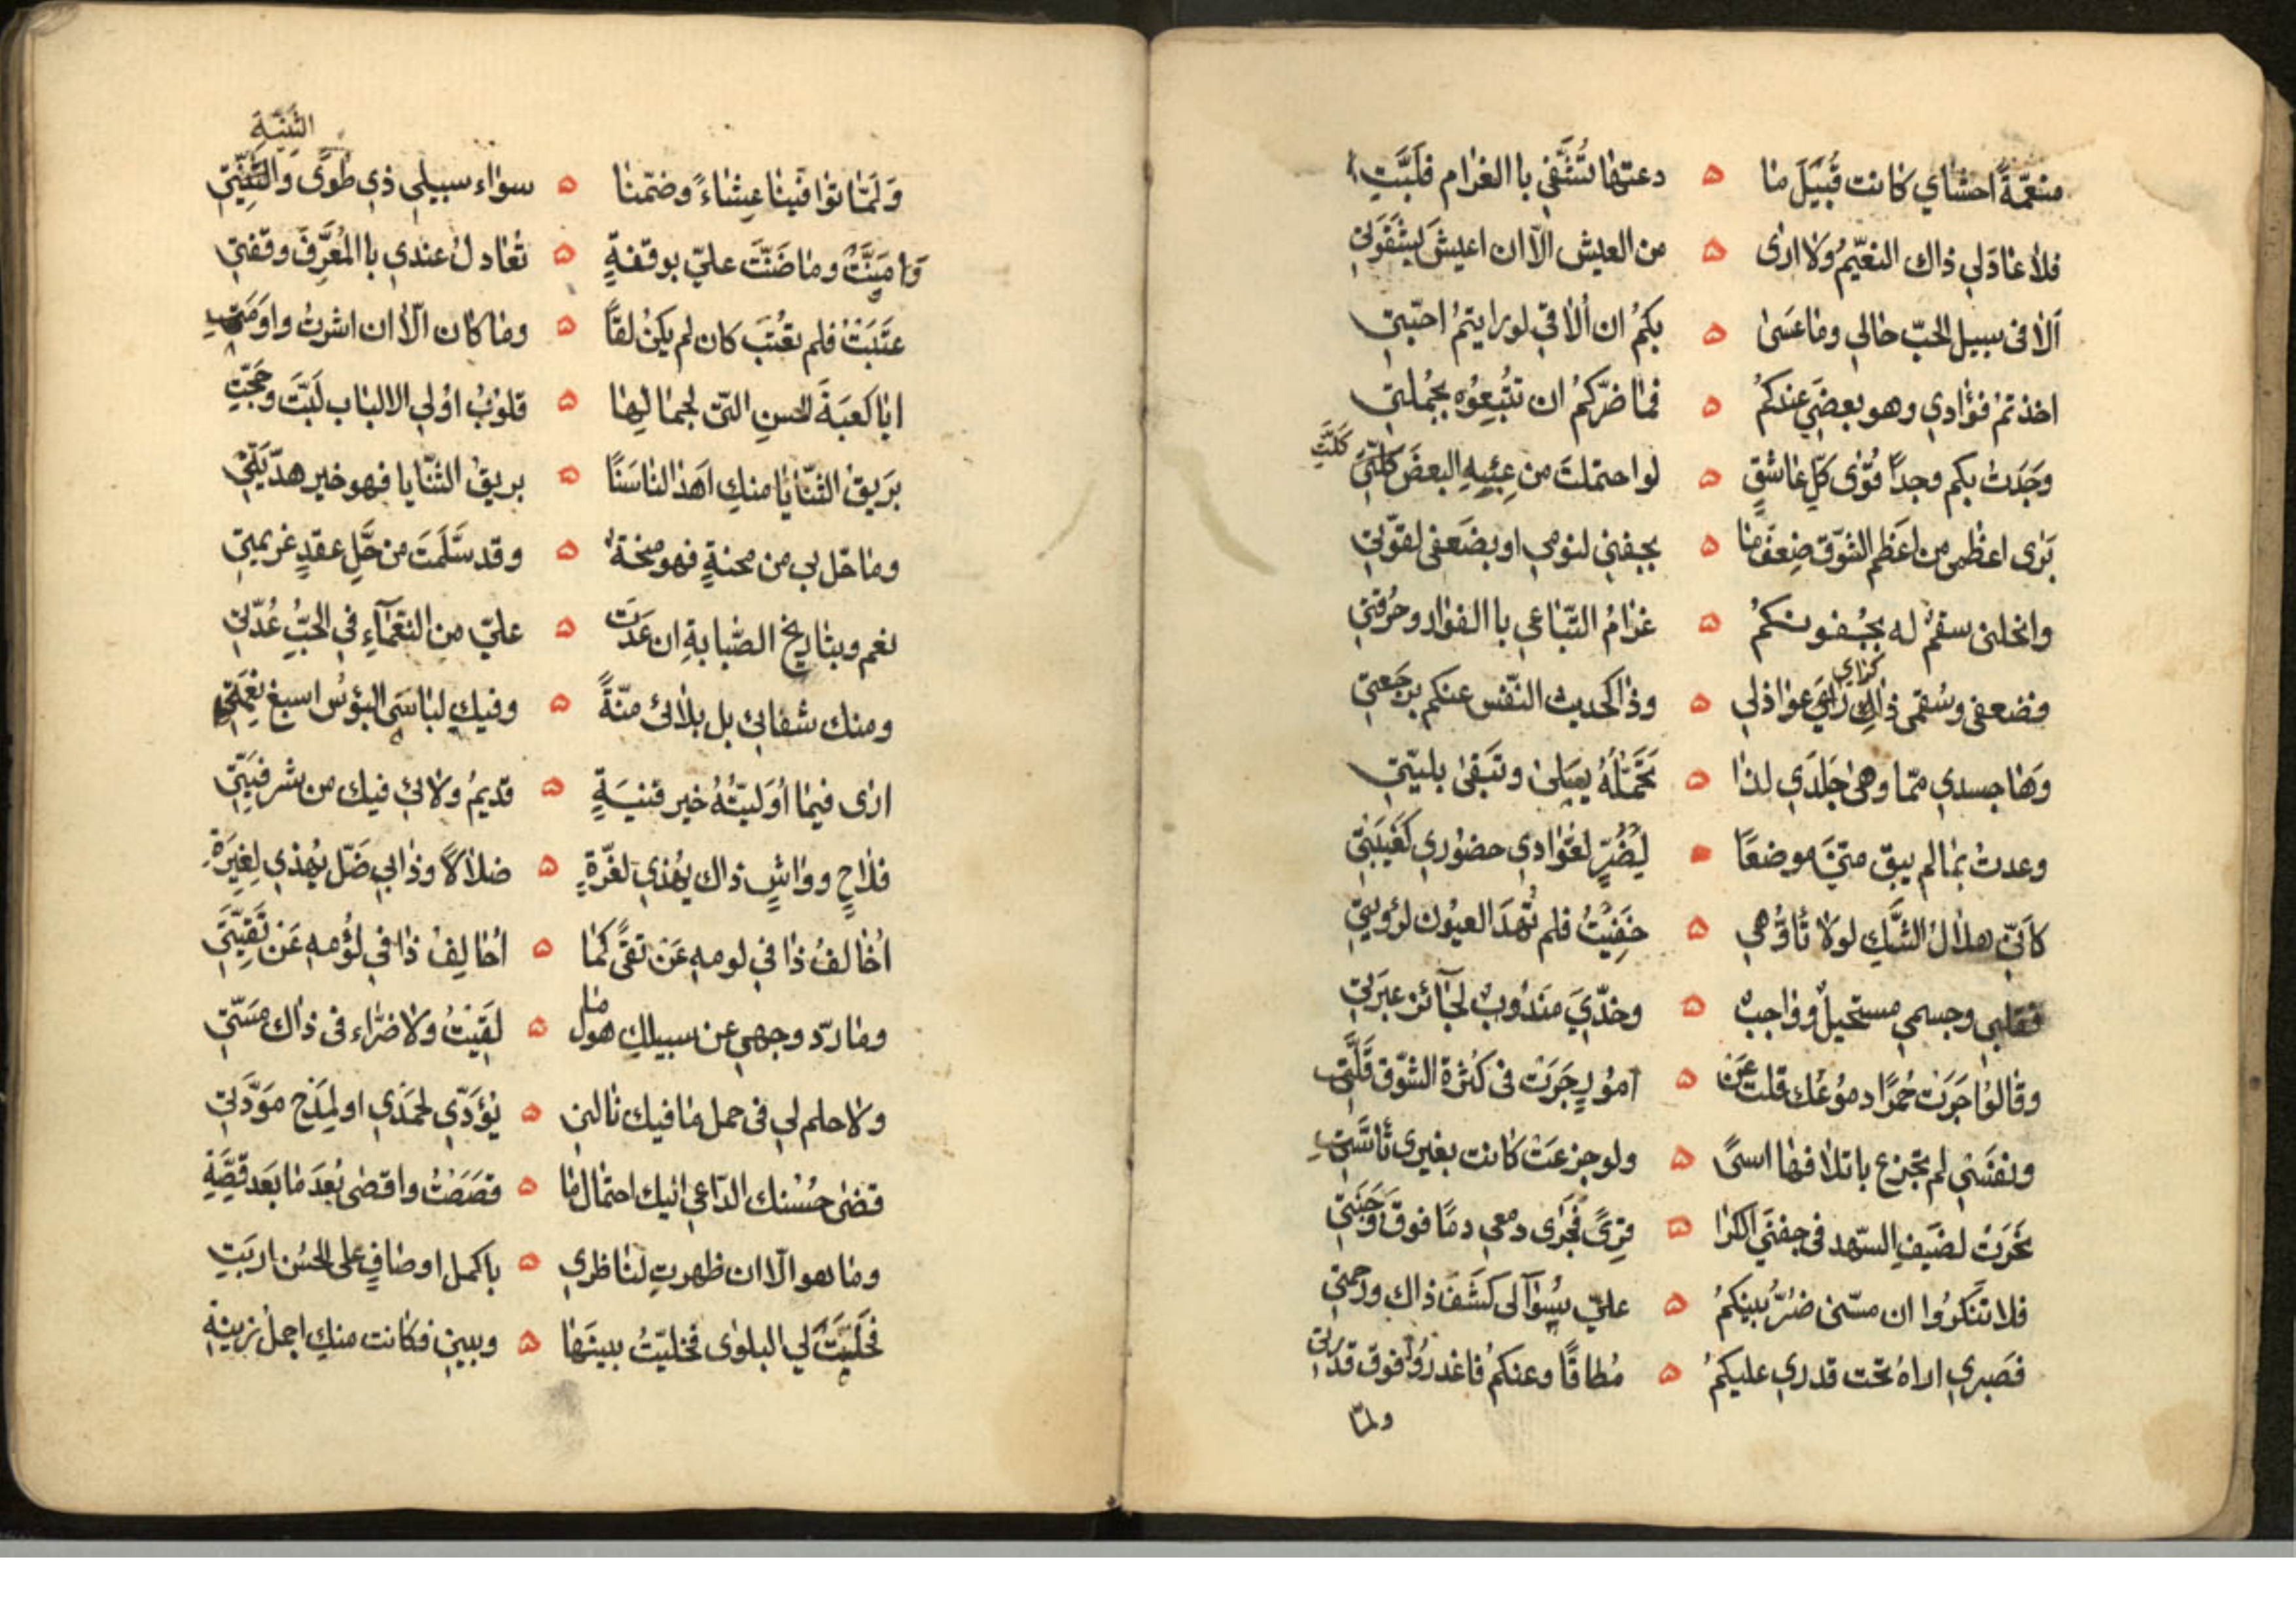 منعّمةً احشاي كانت قُبَيلَ مٰا ۵ دعتهٰا لتُشَّفِي باالغرام فلَبَّتِ
فلاٰ عٰادَلي ذاك النعّيمُ ولاٰ ارٰى ۵ من العيش الّا ان اعيشَ بشَقْوَتي
اَلاٰ فى سبيل الحبّ حٰالي ومٰا عَسَىٰ ۵ بكمُ ان اُلاٰقي لو رايتمُ احبّتي
اخذتمْ فؤادي وهو بعضِي عندكمُ ۵ فمٰا ضرّكمُ ان تتْبِعوُه بجُملتي
وجَدَتْ بكم وجدًا قُوٰى كلِّ عٰاشقٍ ۵ لو احتملتَ من عِبْئِهِ البعضَ كلّتي
كَلَّتِ
بَرٰى اعظُمى من اعَظمِ الشوّق ضِعفُ مٰا ۵ بجفنِي لنومي او بضَعفى لقوّتي
وانحلنى سقمٌ له بجُفونكمُ ۵ غرٰامُ التبٰاعي باالفوٰاد وحُرقتي
فضعفى وسُقمى ذٰاك رَايَ عوٰاذلي ۵ وذٰا كحديث النّفس عنكم برجَعتي
كراي
وَهٰا جسدي ممّا وهىٰ جَلَدَي لذٰا ۵ تحَمّلَهُ يبلىٰ وتَبقىٰ بليّتي
وعدتُ بمٰا لم يبقِ منّي موضعًا ۵ لِضُرٍّ لعُوّٰادي حضوُري كغَيبَتي
كاَنّي هلاٰلُ الشَّكِ لولاٰ تأوُّهي ۵ خفَيْتُ فلم تُهْدَ العيوُن لرؤيتي
فقلبي وجسمي مستحيلٌ ووٰاجبٌ ۵ وخدّيَ مَندُوبٌ لجٰآئز عبَرتي
وقٰالوُا جَرَتْ حُمرًا دموُعُك قلت عَن ۵ اموُرٍ جَرَتْ فى كثرَة الشّوق قَلَّتِ
ونفسَي لم تجزع باتلاٰفهٰا اسىً ۵ ولو جزعَتْ كانت بغيرى تأسَّتِ
نحَرَتُ لضَيفِ السّهد فى جفنَي الكرٰا ۵ قِرىً فَجَرٰى دمعي دمًا فوقَ وَجنتي
فلا تنَكرُوا ان مسّنى ضُرُّ بينكمُ ۵ عليّ سُؤٰالى كشَفَ ذاك ورحمتي
فصَبري اراهُ تحت قدري عليكمُ ۵ مُطاقًا وعنكمُ فاعذرُوا فوق قدرتي
ولمّا
الثَنِيَّةِ
وَلَمّٰا توٰافَينٰا عِشٰاءً وضمّنٰا ۵ سوٰاء سبيلي ذي طوًى والثَّنِيّتي
وَامنَّتْ ومٰا ضنَّتَ عليّ بوقفةٍ ۵ تُعٰادلُ عندي باالمُعَرَّفِ وقفتي
عتَبَتُ فلم تعُتِبَ كان لم يكنْ لقًا ۵ ومٰا كان الاّٰ ان اشرتُ واومَتِ
ايٰا كعبَةَ الحسنِ التّى لجمٰالِهٰا ۵ قلوُبُ اوُلي الالبٰاب لَبَّتَ وحَجَّتِ
بَريقَ الثنّايٰا منكِ اَهَدٰا لنٰا سَنًا ۵ بريقُ الثنّٰايا فهو خير هدّيَتي
ومٰا حّل بي من محنةٍ فهو منحةٌ ۵ وقد سَّلَمتَ من حَلِّ عقدٍ عزيمتي
نعم وبتٰاريخ الصّبٰابةِ ان عَدَت ۵ عليّ من النعَمٰآءِ في الحبِّ عُدّتي
ومنك شقائي بل بلاٰئى منّةً ۵ وفيكِ لبٰاسَى البؤسُ اسبغ نعمَتي
ارٰى فيمٰا اُوَليتُهُ خير قنيَةٍ ۵ قديمُ ولاٰئي فيك من شر فتيَتي
فلاٰحٍ ووٰاشٍ ذاك يُهْدي لغرّةٍ ۵ ضلاٰلاً وذٰا بي ضَلّ يُهذي لغِيَرَةِ
اُخٰالفُ ذٰا في لومهِ عَن تقىً كمٰا ۵ اُحٰالِفُ ذٰا في لؤُمهِ عَن تَقِيّتي
ومٰا ردّ وجهي عن سبيلكِ هولُ مٰا ۵ لَقِيْتُ ولاٰ ضرّاء فى ذٰاك مسَتّي
ولاٰ حلم لي فى حمل مٰا فيك نٰالني ۵ يُؤدّي لحمَدي او لمَدْح مَوَدَّتي
قضىٰ حُسْنك الدّاعي اليك احتمٰال مٰا ۵ قصَصَتُ واقصٰى بُعدَ مٰا بعَد قصِّةِ
ومٰا هو الاّ ان ظهرتِ لنٰاظري ۵ باكمل اوصٰافٍ على الحُسن اربَتِ
فحَلّيَتِ لي البلوٰى فخليّتُ بينهٰا ۵ وبيني فكانت منكِ اجملَ زينةِ